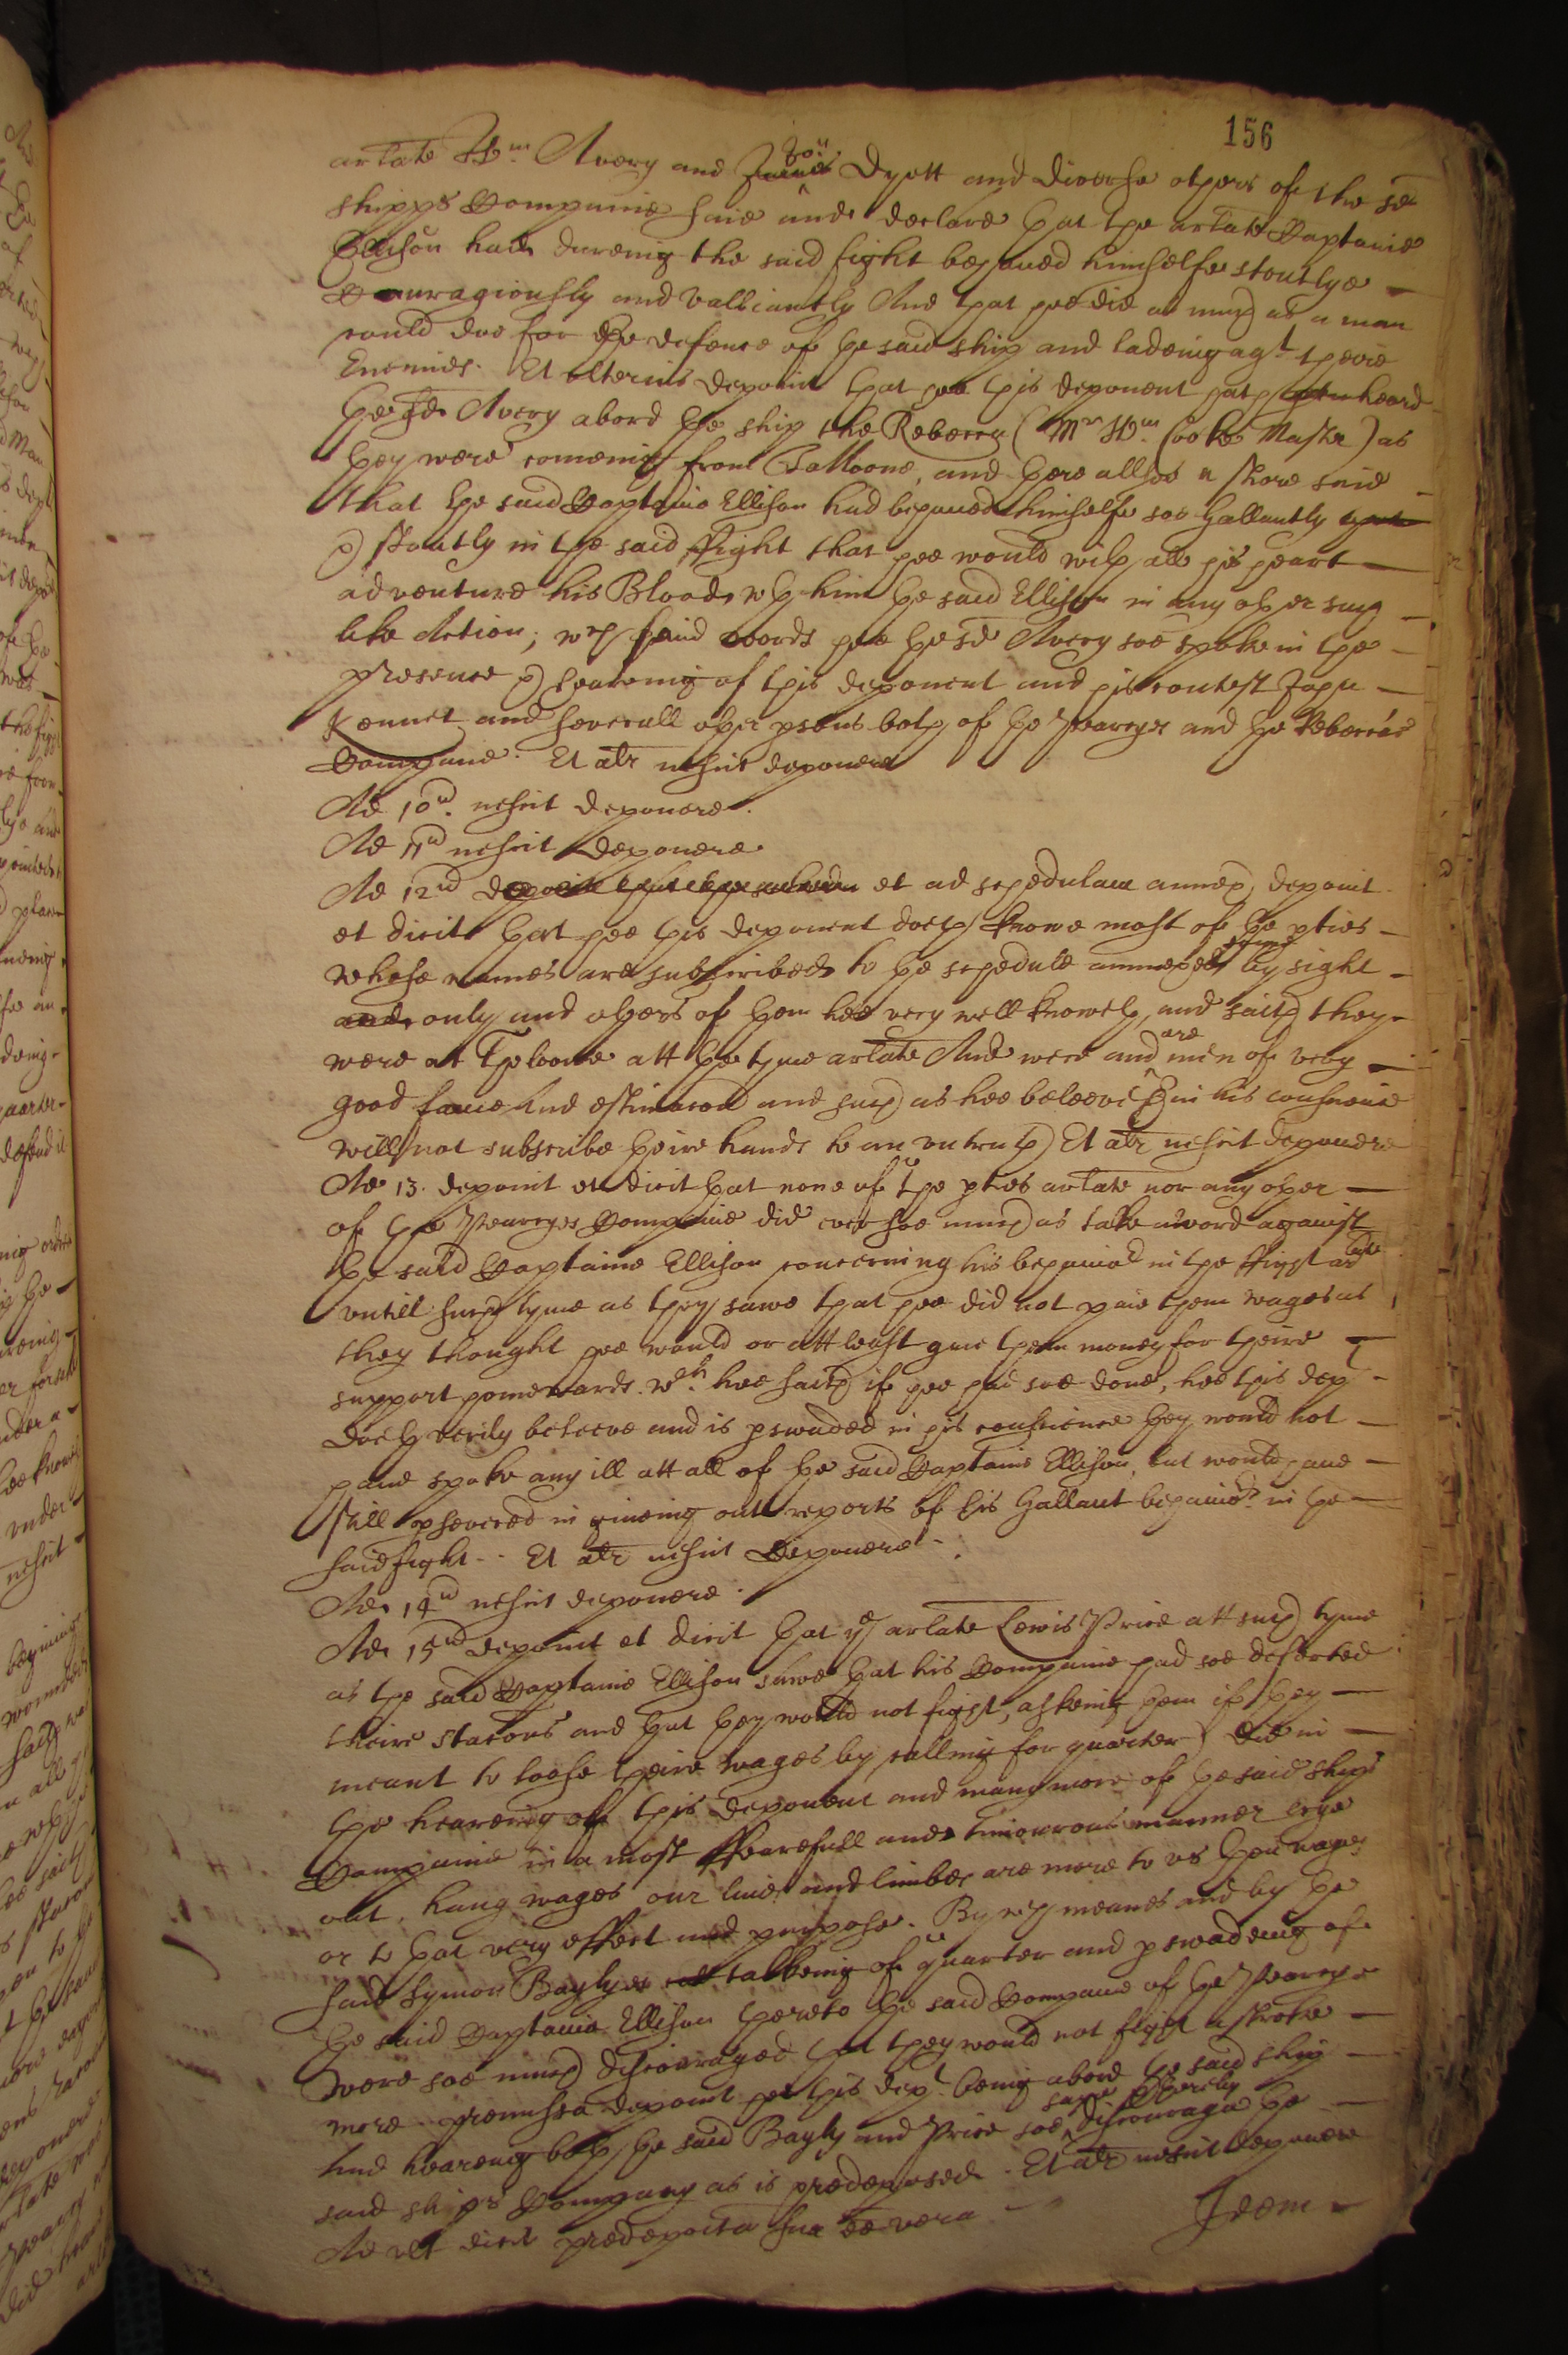 156
arlate Wm Avery and James Jon Dyett and diverse others of the sd
shipps Companie saie and declare that the arlate Captaine
Ellison hath dureing the said fight behaued himselfe stoutlye
Couragiously and valliantly And that hee did as much as a man
could doe for the defence of the said ship and ladeing agt theire
Enemies. Et ulterius deponit that hee this deponent hath heard
the sd Avery abord the ship the Rebecca (Mr Wm Cooke Master) as
they were comeing from and here allsoe a shore saie
that the said Captaine Ellison had behaued himselfe soe Gallantly
& stoutly in the said ffight that hee would with all his heart
adventure his Blood wth him the said Ellison in any other such
like Action; wch said words hee the sd Avery soe spoke in the
presence & heareing of this deponent and his contest John
Kennet and severall other psons both of the Pearcyes and the Rebeccas
Companie. Et alr nescit deponere
Ad 10um. nescit deponere.
Ad 11um nescit deponere.
Ad 12um deponit that the et ad schedulam annex deponit
et dicit that hee this deponent doeth knowe most of the pties
whose names are subscribed to the schedule annexed by sight
and only and others of them hee very well knoweth, and saith they
were at att the tyme arlate And were and are men of very
good fame and estimacon and such as hee beleeveth in his conscience
will not subscribe theire hands to an vntruth Et alr nescit deponere
Ad 13. deponit et dicit that none of the pties arlate nor any other
of the Pearcyes Companie did ever soe much as take a word against
the said Captaine Ellison concerning his behauior in the ffight arlate
vntill such tyme as they sawe that hee did not paie them wages as
they thought hee would or att least giue them money for theire
support homewards. wch hee saith if hee had soe done, hee this dept
doeth verily beleeve and is pswaded in his conscience they would not
haue spoke any ill att all of the said Captaine Ellison, but would haue
still psevered in giueing out reports of his Gallant behauior in the
said fight. Et alr nescit deponere.
Ad 14um nescit deponere.
Ad 15um deponit et dicit that ye arlate Lewis Price att such tyme
as the said Captaine Ellison sawe that his Companie had soe deserted
theire stacons and that they would not fight, askeing them if they
meant to loose theire wages by calling for quarter) did in
the heareing of this deponent and many more of the said ships
Companie in a most ffearefull and timourous manner crye
out, hang wages our liues and limbes are more to vs then wages
or to that very effect and purpose. By wch meanes and by the
said Symon Baylyes talkeing of quarter and pswadeing of
the said Captaine Ellison thereto the said Companie of the Pearcye
were soe much discouraged that they would not fight a stroke
more premissa deponit hee this dept. being abord the said ship
And heareing both the said Bayly and Price soe saye & thereby discourage the
said ships Company as is predeposed. Et alr nescit deponere
Ad ult dicit predeposita sua ee vera
Idem